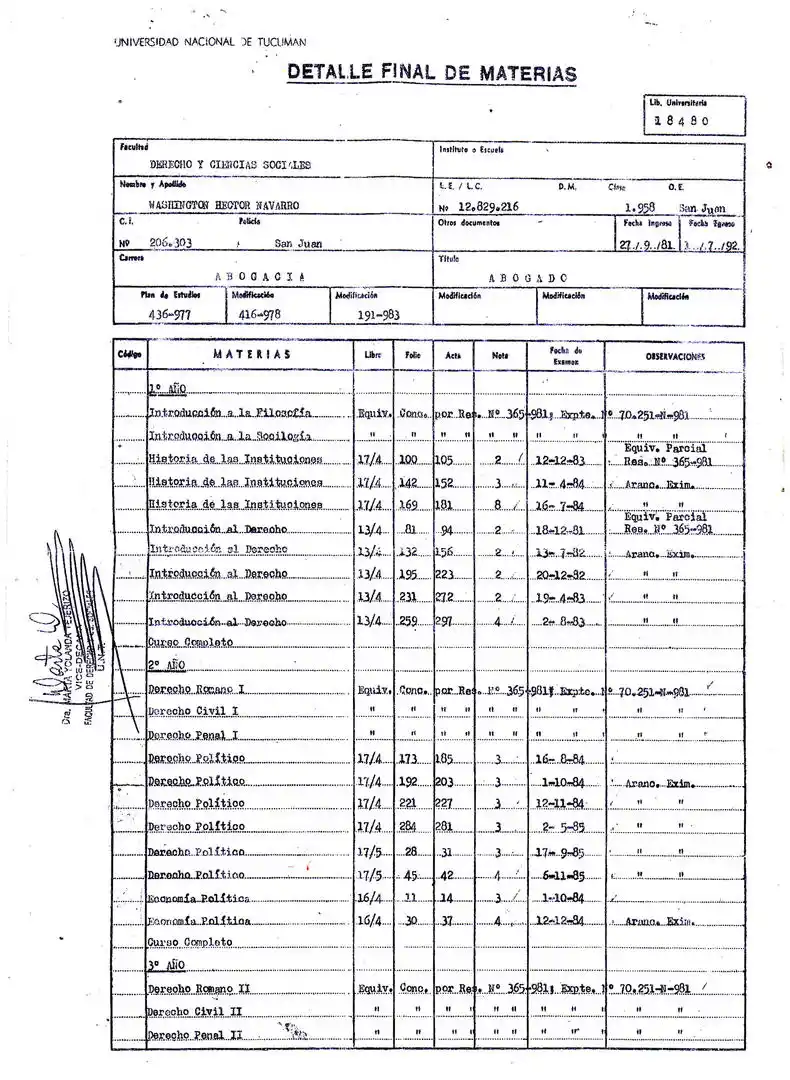 UNIVERSIDAD NACIONAL DE TUCUMAN
DETALLE FINAL DE MATERIAS
Lib. Universitaria
18480
Facultad
DERECHO Y CIENCIAS SOCIALES
Instituto o Escuela
Nombre y Apellido
WASHINGTON HECTOR NAVARRO
L.E. / L.C. D.M. Clase O.E.
Nº 12.829.216 1.958 San Juan
C.I. Policía
Nº 206.303 San Juan
Otros documentos
Fecha Ingreso
27/.9../81.
Fecha Egreso
/.7../92.
Carrera
ABOGACIA
Título
ABOGADO
Plan de Estudios Modificación Modificación Modificación Modificación Modificación
436-977 416-978 191-983
Código MATERIAS Libro Folio Acta Nota Fecha de Examen OBSERVACIONES
1º AÑO
Introducción a la Filosofía Equiv. Conc. por Res. Nº 365-981; Expte. Nº 70.251-N-981
Introducción a la Socilogía " " " " " " " " "
Historia de las Instituciones 17/4 100 105 2 12-12-83 Equiv. Parcial Res. Nº 365-981
Historia de las Instituciones 17/4 142 152 3 11- 4-84 Aranc. Exim.
Historia de las Instituciones 17/4 169 181 8 16- 7-84 " "
Introducción al Derecho 13/4 81 94 2 18-12-81 Equiv. Parcial Res. Nº 365-981
Introducción al Derecho 13/4 132 156 2 13- 7-82 Aranc. Exim.
Introducción al Derecho 13/4 195 223 2 20-12-82 " "
Introducción al Derecho 13/4 231 272 2 19- 4-83 " "
Introducción al Derecho 13/4 259 297 4 2- 8-83 " "
Curso Completo
2º AÑO
Derecho Romano I Equiv. Conc. por Res. Nº 365-981; Expte. Nº 70.251-N-981
Derecho Civil I " " " " " " " " "
Derecho Penal I " " " " " " " " "
Derecho Político 17/4 173 185 3 16- 8-84
Derecho Político 17/4 192 203 3 1-10-84 Aranc. Exim.
Derecho Político 17/4 221 227 3 12-11-84 " "
Derecho Político 17/4 284 281 3 2- 5-85 " "
Derecho Político 17/5 28 31 3 17- 9-85 " "
Derecho Político 17/5 45 42 4 6-11-85 " "
Economía Política 16/4 11 14 3 1-10-84
Economía Política 16/4 30 37 4 12-12-84 Aranc. Exim.
Curso Completo
3º AÑO
Derecho Romano II Equiv. Conc. por Res. Nº 365-981; Expte. Nº 70.251-N-981
Derecho Civil II " " " " " " " " "
Derecho Penal II " " " " " " " " "
Dra. MARTA YOLANDA TEJERIZO
VICE-DECANA
FACULTAD DE DERECHO Y C. SOCIALES
U.N.T.